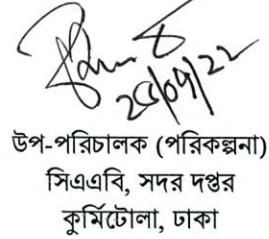 ২৫/০৭/২২
উপ-পরিচালক (পরিকল্পনা)
সিএএবি, সদর দপ্তর
কুর্মিটোলা, ঢাকা